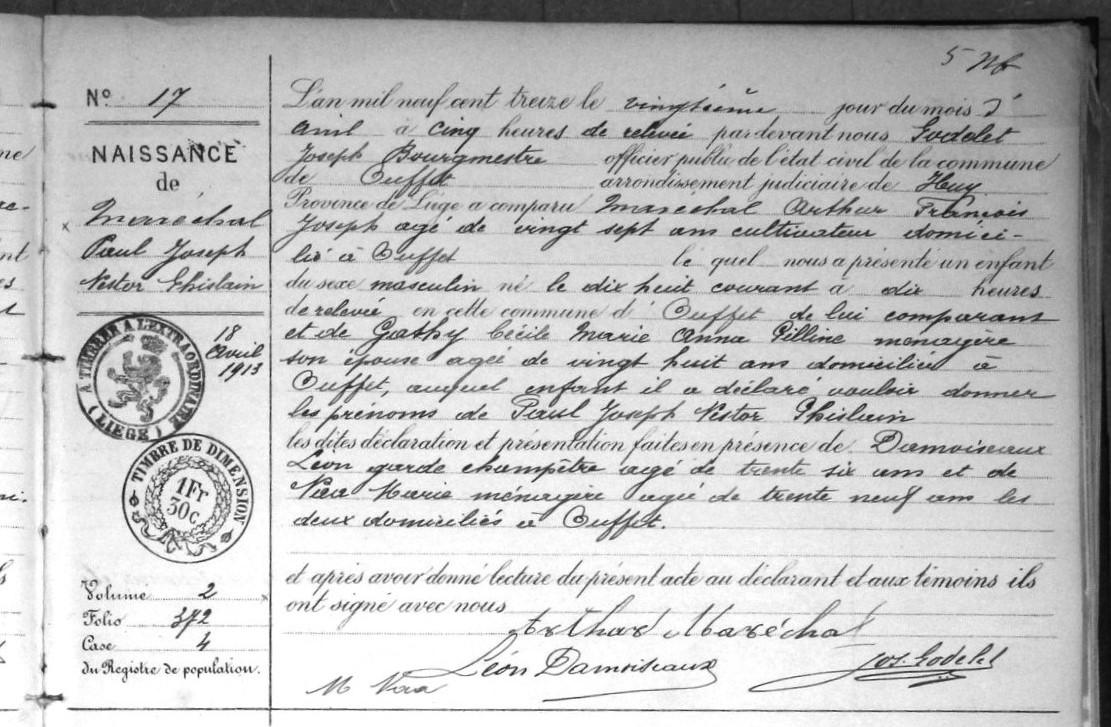 5
Nº 17
NAISSANCE
de
Maréchal
Paul Joseph
Nestor Ghislain
18
Avril
1913
A TIMBRER A L'EXTRAORDINAIRE
(LIEGE)
TIMBRE DE DIMENSION
1Fr
30c
Volume 2
Folio 372
Case 4
du Registre de population.
L'an mil neuf cent treize le vingtième jour du mois d'
avril à cinq heures de relevée pardevant nous Godelet
Joseph Bourgmestre officier public de l'état civil de la commune
de Ouffet arrondissement judiciaire de Huy
Province de Liége a comparu Maréchal Arthur François
Joseph agé de vingt sept ans cultivateur domici-
lié à Ouffet le quel nous a présenté un enfant
du sexe masculin né le dix huit courant à dix heures
de relevée en cette commune d'Ouffet de lui comparant
et de Gathy Cécile Marie Anna
ménagère
son épouse agée de vingt huit ans domiciliée à
Ouffet, auquel enfant il a déclaré vouloir donner
les prénoms de Paul Joseph Nestor Ghislain
les dites déclaration et présentation faites en présence de Damoiseaux
Léon garde champêtre agé de trente six ans et de
Marie ménagère agée de trente neuf ans les
deux domiciliés à Ouffet.
et après avoir donné lecture du présent acte au déclarant et aux témoins ils
ont signé avec nous
Arthur Maréchal
Léon Damoiseaux
Jos. Godelet
M